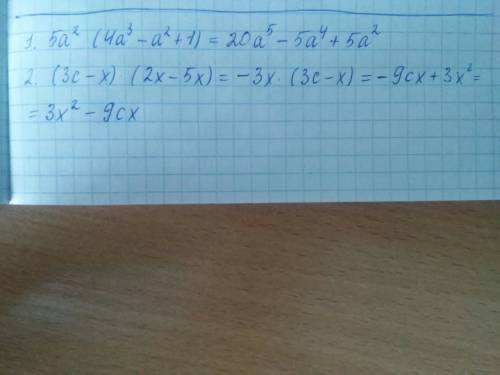 1. 5a² (4a³ - a² + 1) = 20a⁵ - 5a⁴ + 5a²
2. (3c - x) (2x - 5x) = -3x · (3c - x) = -9cx + 3x² =
= 3x² - 9cx